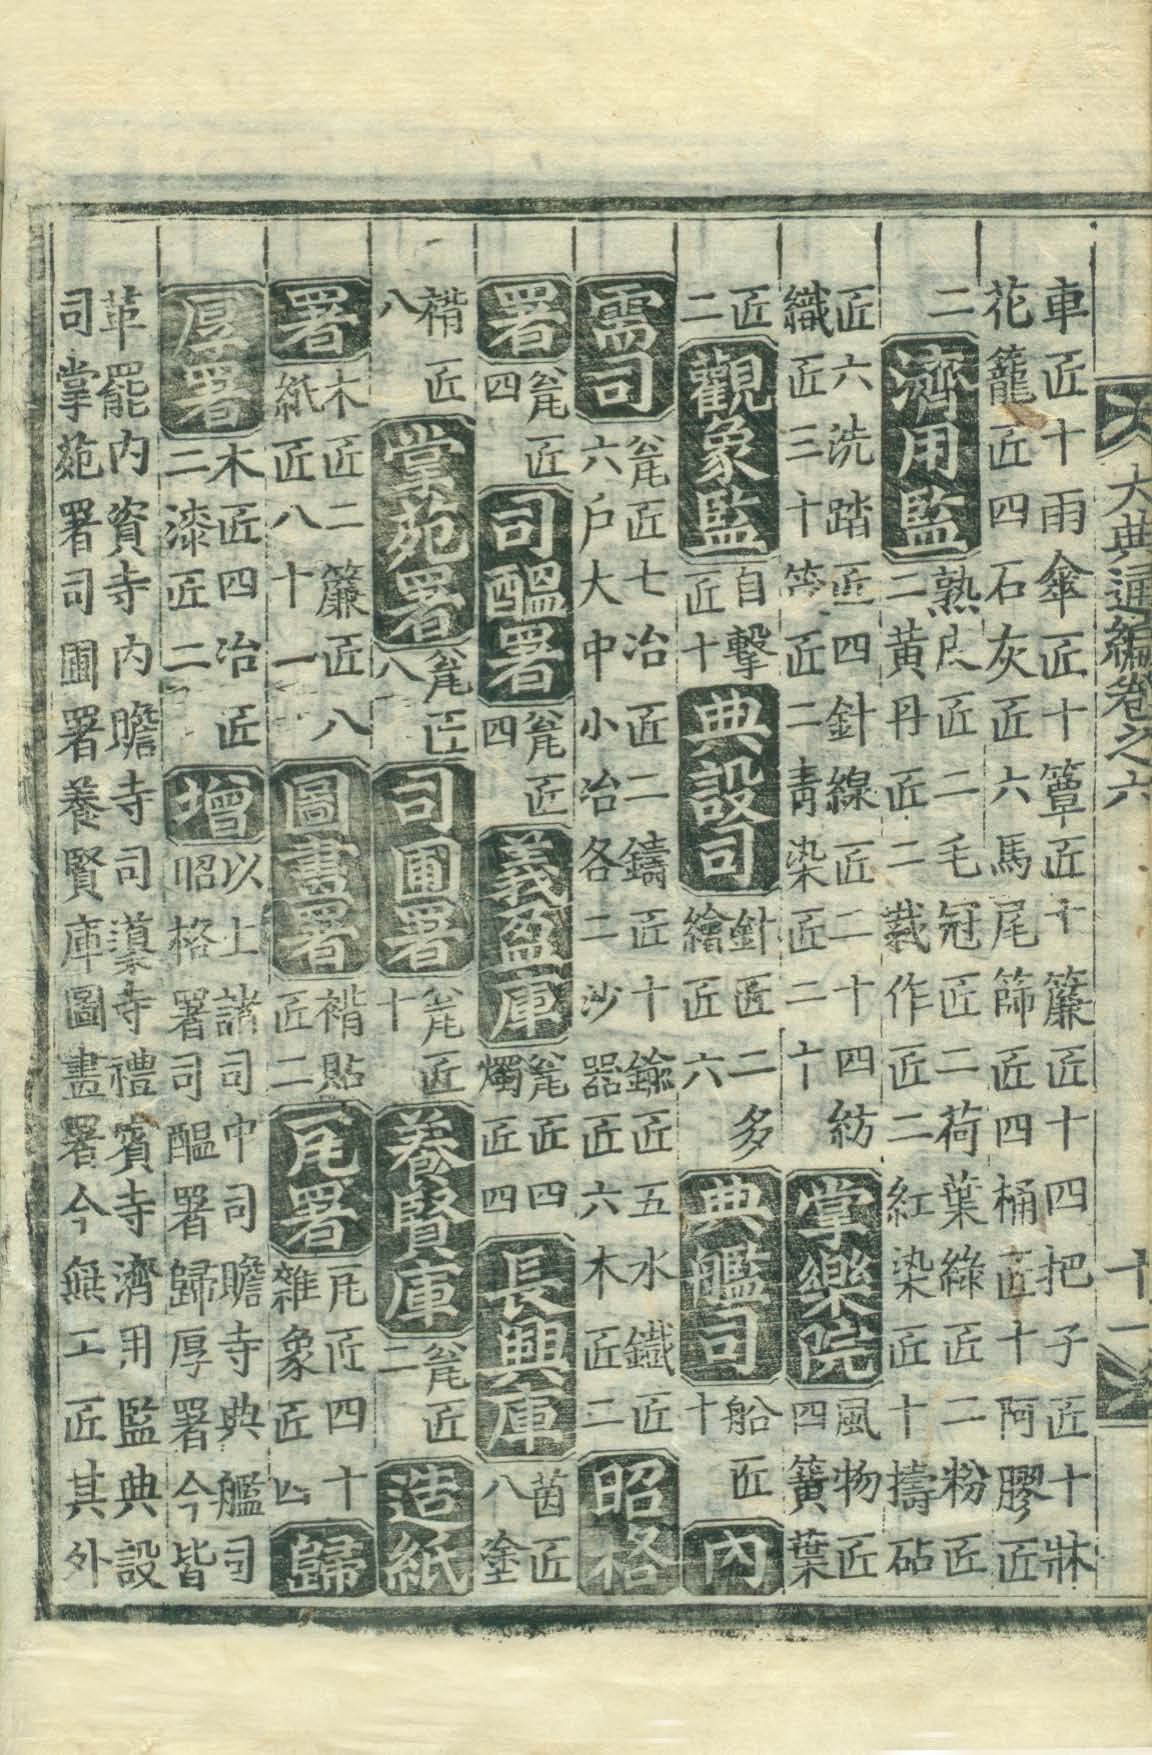 大典通編卷之六 十一
車匠十雨傘匠十簟匠十簾匠十四把子匠十牀
花籠匠四石灰匠六馬尾篩匠四桶匠十阿膠匠
二
濟用監
熟皮匠二毛冠匠二荷葉綠匠二粉匠
二黃丹匠二裁作匠二紅染匠十擣砧
匠六洗踏匠四針線匠二十四紡
織匠三十筓匠二靑染匠二十
掌樂院
風物匠
四簧葉
匠
二
觀象監
自擊
匠十
典設司
針匠二多
繪匠六
典艦司
船匠
十
內
需司
瓮匠七冶匠二鑄匠十鍮匠五水鐵匠
六戶大中小冶各二沙器匠六木匠二
昭格
署
瓮匠
四
司醞署
瓮匠
四
義盈庫
瓮匠四
燭匠四
長興庫
茵匠
八塗
褙匠
八
掌苑署
瓮匠
八
司圃署
瓮匠
十
養賢庫
瓮匠
二
造紙
署
木匠二簾匠八
紙匠八十一
圖畫署
褙貼
匠二
瓦署
瓦匠四十
雜象匠四
歸
厚署
木匠四冶匠
二漆匠二
增
以上諸司中司贍寺典艦司
昭格署司醞署歸厚署今皆
革罷內資寺內贍寺司䆃寺禮賓寺濟用監典設
司掌苑署司圃署養賢庫圖畫署今無工匠其外